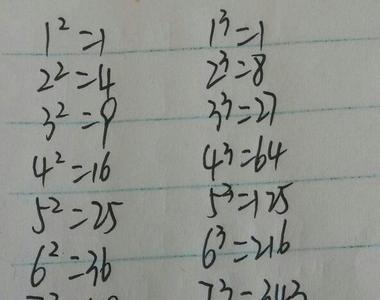 1²=1 1³=1
2²=4 2³=8
3²=9 3³=27
4²=16 4³=64
5²=25 5³=125
6²=36 6³=216